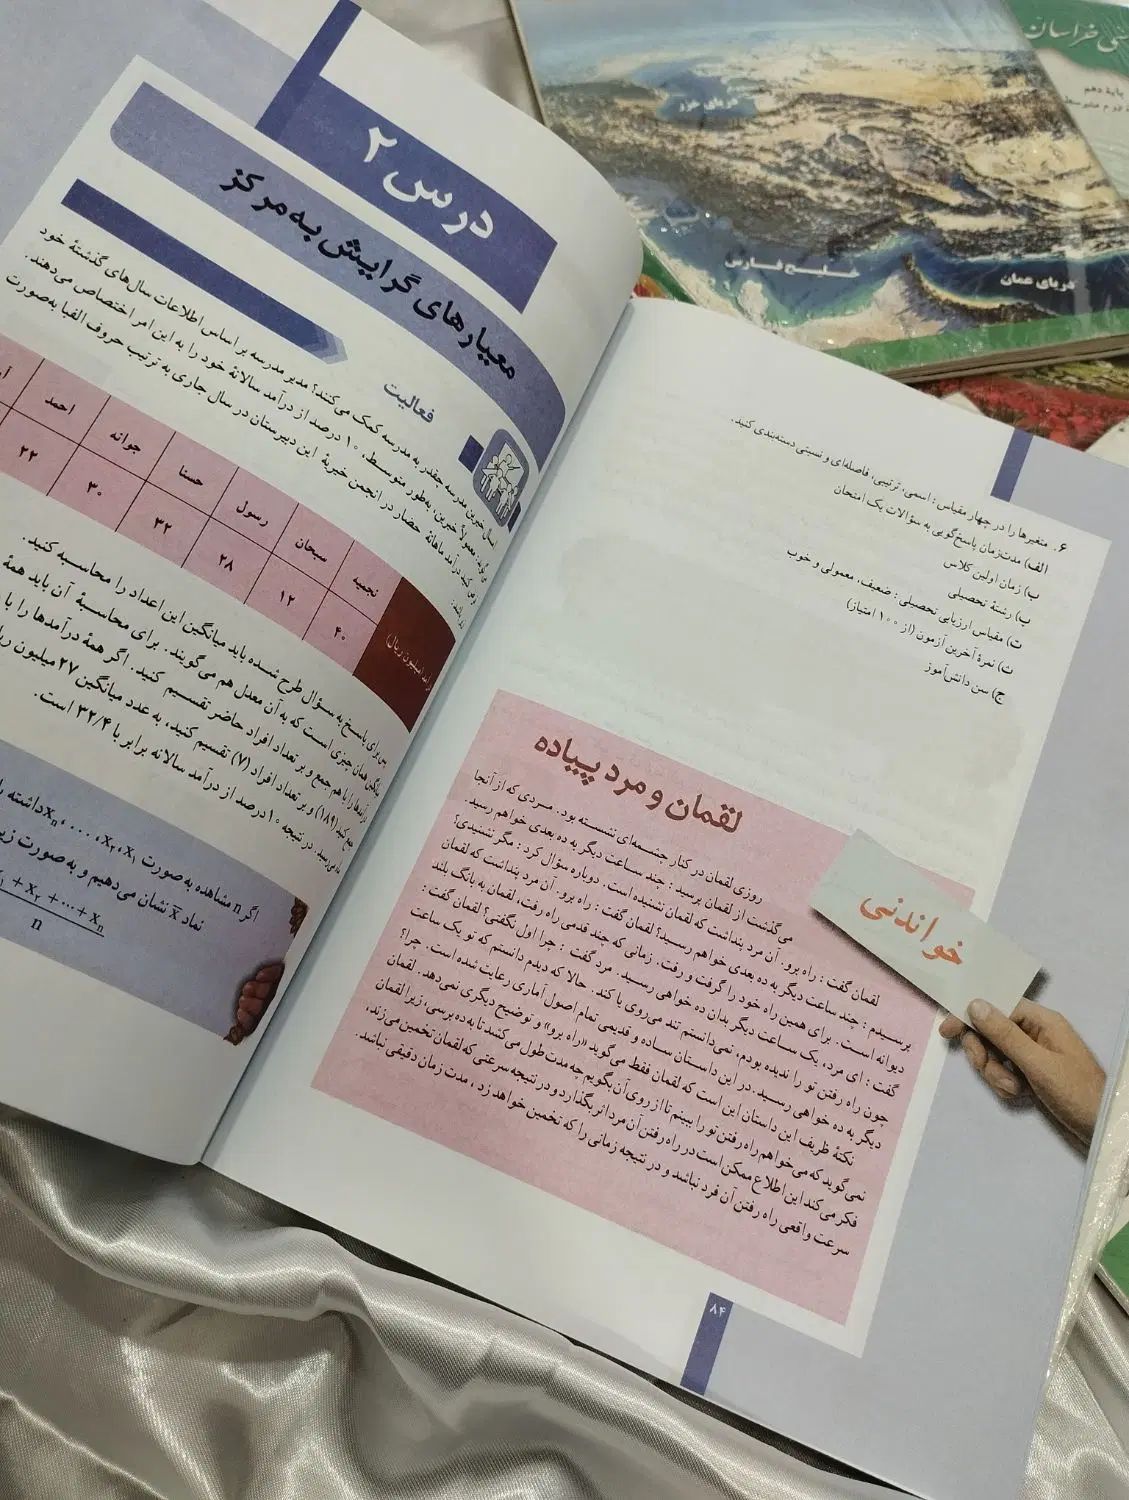 درس ۲
معیارهای گرایش به مرکز
فعالیت
خیرین مدرسه چقدر به مدرسه کمک می‌کنند؟ مدیر مدرسه بر اساس اطلاعات سال‌های گذشتهٔ خود
معمولاً خیرین، به‌طور متوسط، ۱۰ درصد از درآمد سالانهٔ خود را به این امر اختصاص می‌دهند.
کنید درآمد ماهانهٔ حضار در انجمن خیریهٔ این دبیرستان در سال جاری به ترتیب حروف الفبا به‌صورت
نجمیه
سبحان
رسول
حسنا
جوانه
احمد
(میلیون ریال)
۴۰
۱۲
۲۸
۳۲
۳۰
۲۲
پس برای پاسخ به سؤال طرح شده باید میانگین این اعداد را محاسبه کنید.
همان چیزی است که به آن معدل هم می‌گویند. برای محاسبهٔ آن باید همهٔ
درآمدها را با هم جمع و بر تعداد افراد حاضر تقسیم کنید. اگر همهٔ درآمدها را با
کنید (۱۸۹) و بر تعداد افراد (۷) تقسیم کنید، به عدد میانگین ۲۷ میلیون
می‌رسید. در نتیجه ۱۰ درصد از درآمد سالانه برابر با ۳۲/۴ است.
اگر n مشاهده به صورت x₁، x₂، ...، xₙ داشته
نماد x̄ نشان می‌دهیم و به صورت
+ x₂ + ... + xₙ
n
۶. متغیرها را در چهار مقیاس : اسمی، ترتیبی، فاصله‌ای و نسبتی دسته‌بندی کنید.
الف) مدت‌زمان پاسخ‌گویی به سؤالات یک امتحان
ب) زمان اولین کلاس
پ) رشتهٔ تحصیلی
ت) مقیاس ارزیابی تحصیلی : ضعیف، معمولی و خوب
ث) نمرهٔ آخرین آزمون (از ۱۰۰ امتیاز)
ج) سن دانش‌آموز
خواندنی
لقمان و مرد پیاده
روزی لقمان در کنار چشمه‌ای نشسته بود. مردی که از آنجا
می‌گذشت از لقمان پرسید : چند ساعت دیگر به ده بعدی خواهم رسید.
لقمان گفت : راه برو. آن مرد پنداشت که لقمان نشنیده است. دوباره سؤال کرد : مگر نشنیدی؟
پرسیدم : چند ساعت دیگر به ده بعدی خواهم رسید؟ لقمان گفت : راه برو. آن مرد پنداشت که لقمان
دیوانه است. برای همین راه خود را گرفت و رفت. زمانی که چند قدمی راه رفت، لقمان به بانگ بلند
گفت : ای مرد، یک ساعت دیگر بدان ده خواهی رسید. مرد گفت : چرا اول نگفتی؟ لقمان گفت :
چون راه رفتن تو را ندیده بودم، نمی‌دانستم تند می‌روی یا کند. حالا که دیدم دانستم که تو یک ساعت
دیگر به ده خواهی رسید. در این داستان ساده و قدیمی تمام اصول آماری رعایت شده است. چرا؟
نکتهٔ ظریف این داستان این است که لقمان فقط می‌گوید «راه برو» و توضیح دیگری نمی‌دهد. لقمان
نمی‌گوید که می‌خواهم راه رفتن تو را ببینم تا از روی آن بگویم چه مدت طول می‌کشد تا به ده برسی، زیرا لقمان
فکر می‌کند این اطلاع ممکن است در راه رفتن آن مرد اثر بگذارد و در نتیجه سرعتی که لقمان تخمین می‌زند،
سرعت واقعی راه رفتن آن فرد نباشد و در نتیجه زمانی را که تخمین خواهد زد، مدت زمان دقیقی نباشد.
۸۴
دریای خزر
خلیج فارس
دریای عمان
خراسان
پایهٔ دهم